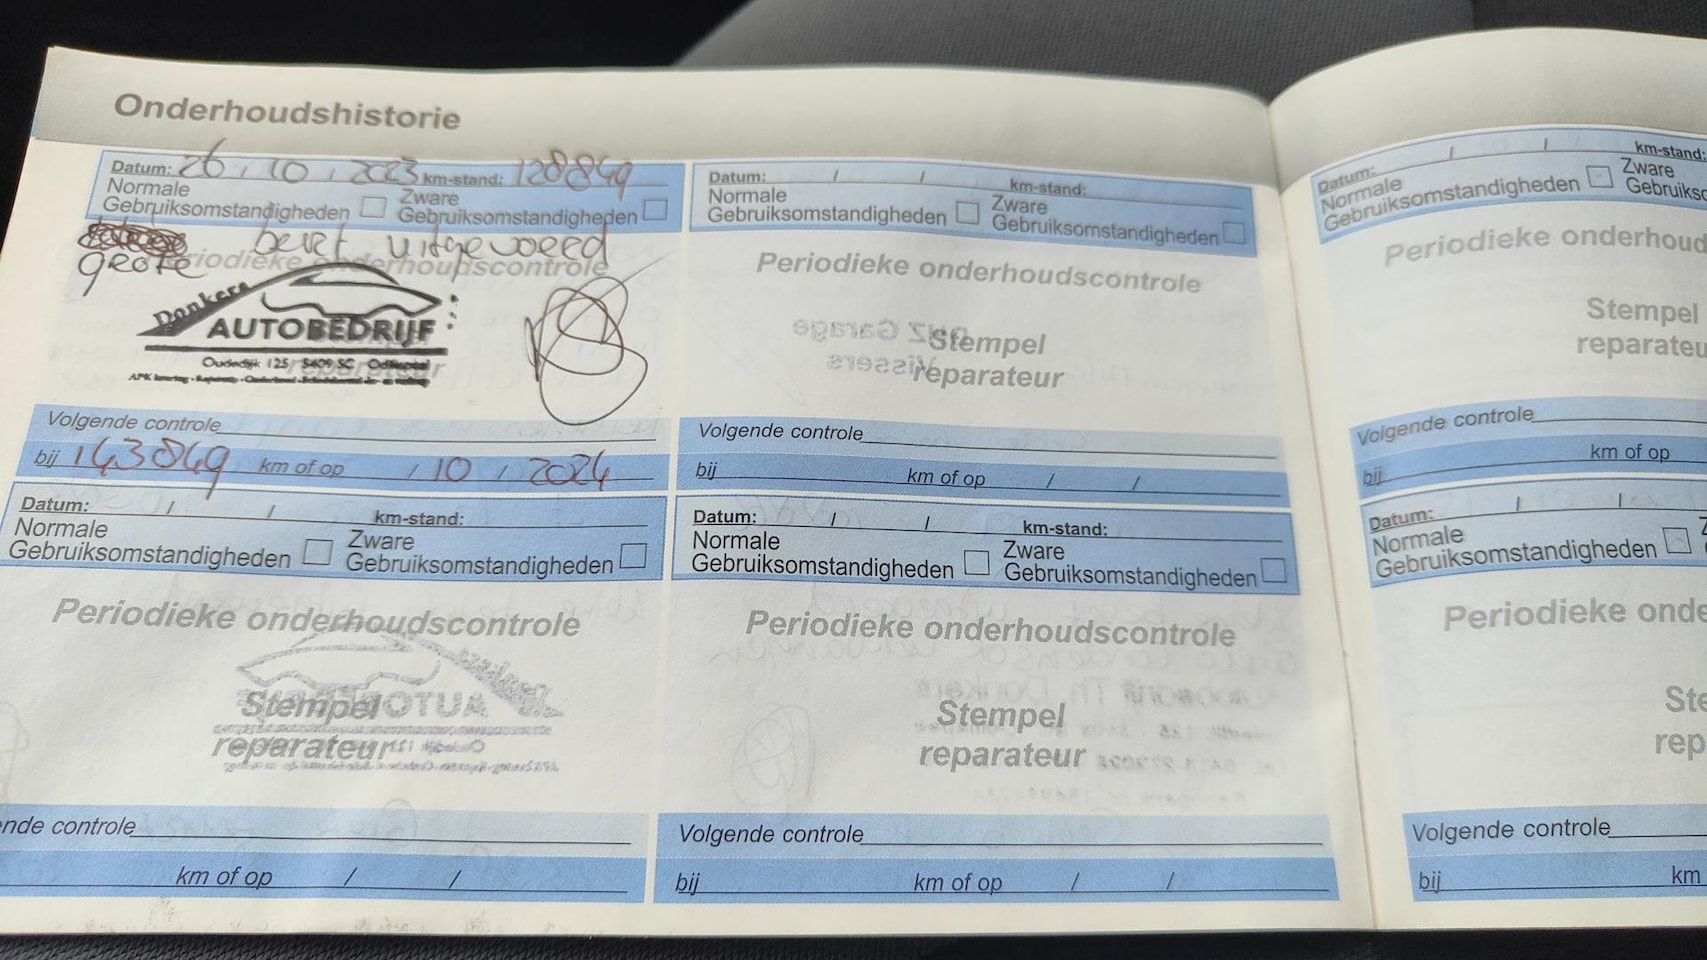 Onderhoudshistorie
Datum: 26 / 10 / 2023 km-stand: 128849
Normale Gebruiksomstandigheden
Zware Gebruiksomstandigheden
grote beurt uitgevoerd
Periodieke onderhoudscontrole
Donkers
AUTOBEDRIJF
Oudedijk 125 5409 SC Odiliapeel
reparateur
Volgende controle
bij 143849 km of op / 10 / 2024
Datum: / / km-stand:
Normale Gebruiksomstandigheden
Zware Gebruiksomstandigheden
Periodieke onderhoudscontrole
Stempel
reparateur
nde controle
km of op / /
Datum: / / km-stand:
Normale Gebruiksomstandigheden
Zware Gebruiksomstandigheden
Periodieke onderhoudscontrole
Stempel
reparateur
Volgende controle
bij km of op / /
Datum: / / km-stand:
Normale Gebruiksomstandigheden
Zware Gebruiksomstandigheden
Periodieke onderhoudscontrole
Stempel
reparateur
Volgende controle
bij km of op / /
Datum: / / km-stand:
Normale Gebruiksomstandigheden
Zware Gebruiks
Periodieke onderhoud
Stempel
reparateu
Volgende controle
bij km of op
Datum: / /
Normale Gebruiksomstandigheden
Periodieke onde
Ste
rep
Volgende controle
bij km